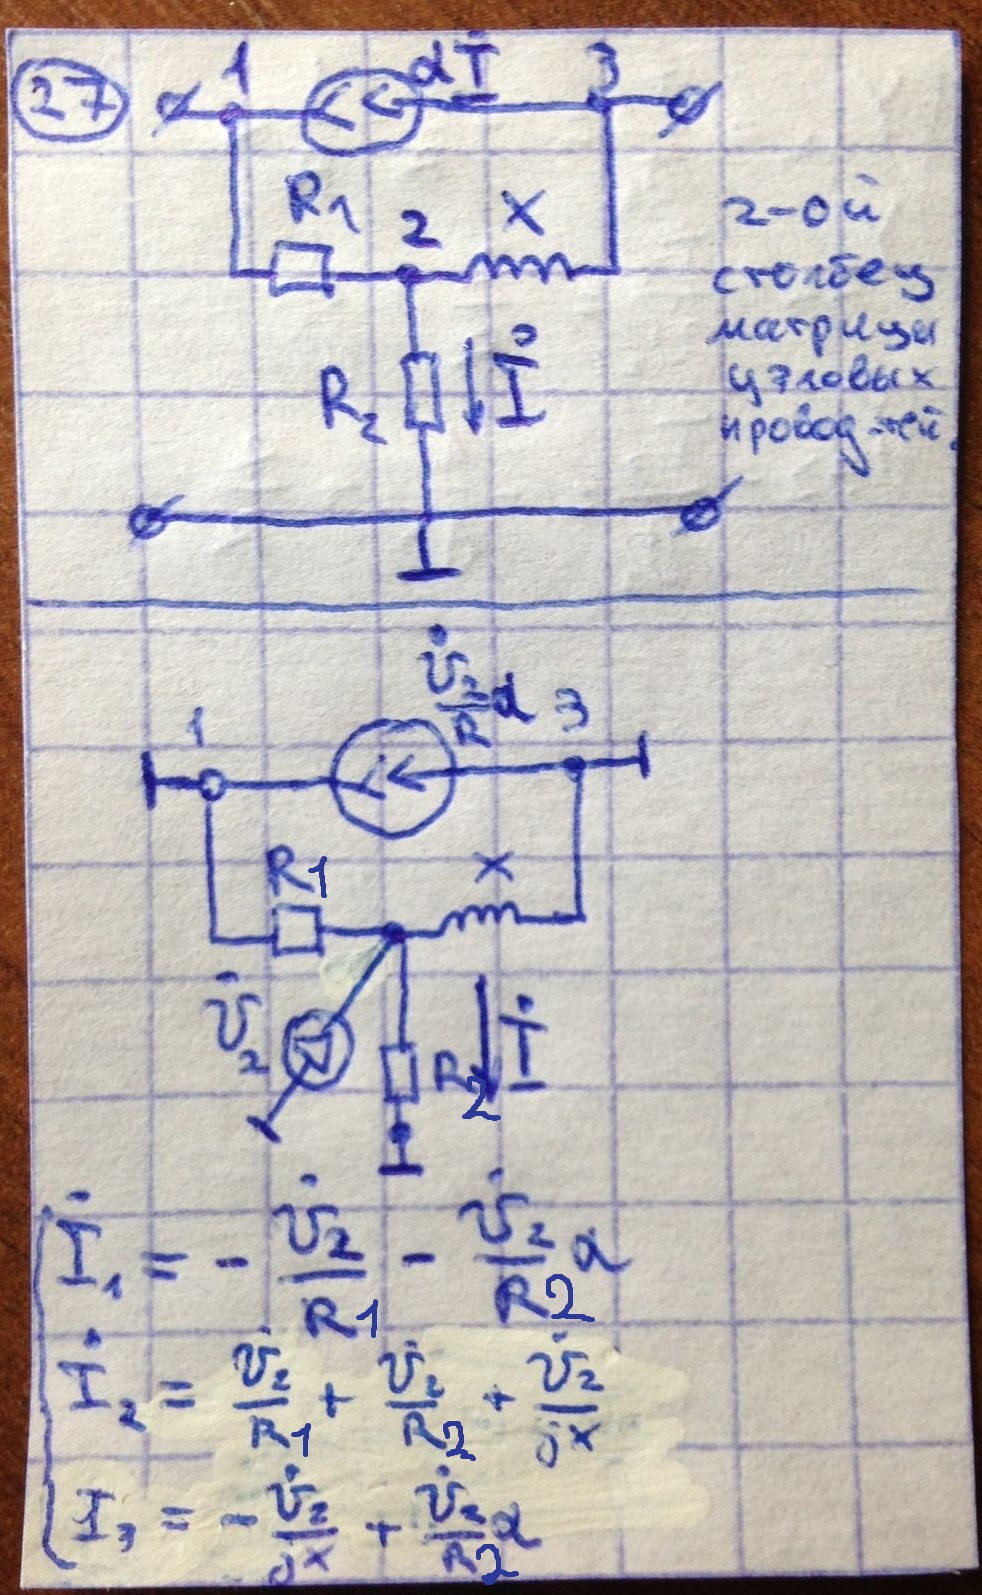 27
1 αİ 3
R1 2 X
2-ой
столбец
матрицы
узловых
провод-тей.
R2 İ
U̇2/R α
1 3
R1 X
U̇2 R2 İ
İ1 = - U̇2/R1 - U̇2/R2 α
İ2 = U̇2/R1 + U̇2/R2 + U̇2/jx
I3 = - U̇2/jx + U̇2/R2 α